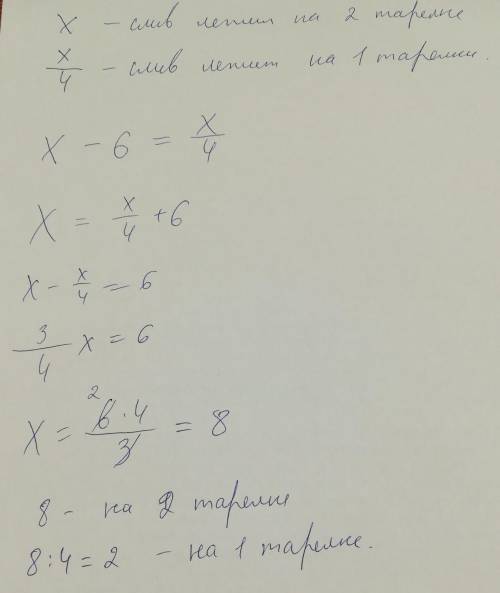 x — слив лежит на 2 тарелке
x/4 — слив лежит на 1 тарелки.
x − 6 = x/4
x = x/4 + 6
x − x/4 = 6
3/4 x = 6
x = 6·4/3 = 8
2
8 — на 2 тарелке
8 : 4 = 2 — на 1 тарелке.